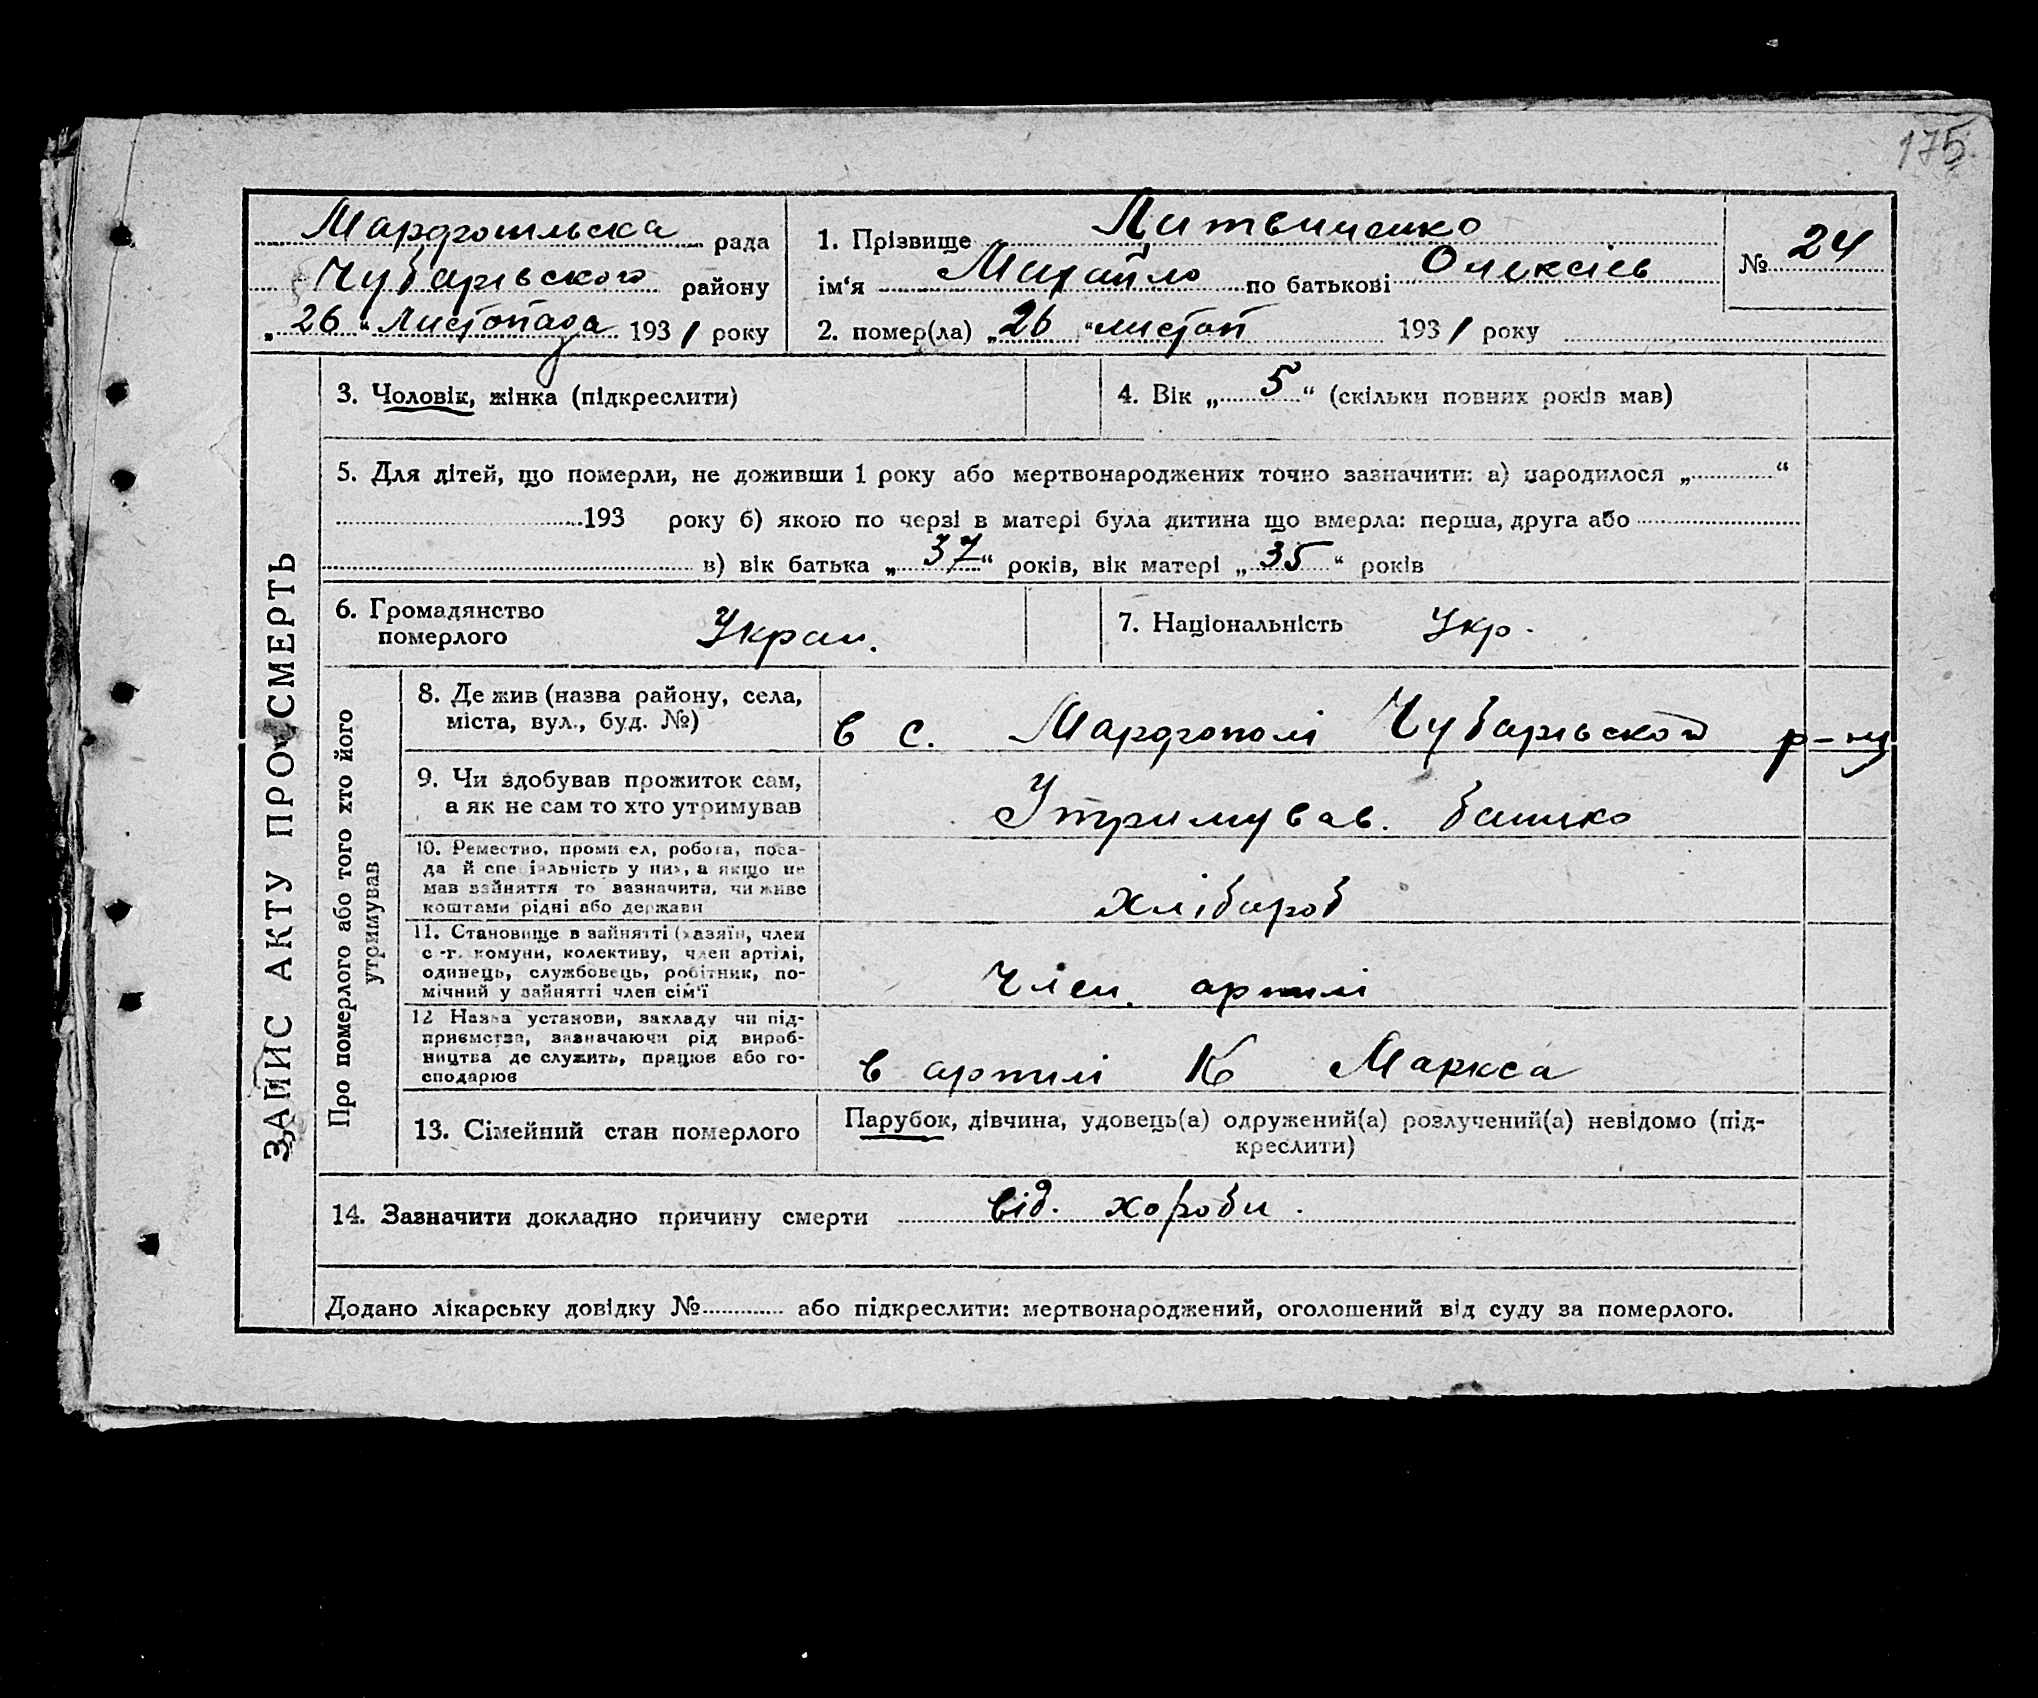 175
Марфопільська рада
Чубарівського району
„26“ Листопада 1931 року
1. Прізвище Литвиненко
ім‘я Михайло по батькові Олексіев
№ 24
2. помер(ла) „26“ листоп 1931 року
ЗАПИС АКТУ ПРО СМЕРТЬ
3. Чоловік, жінка (підкреслити)
4. Вік „5“ (скільки повних років мав)
5. Для дітей, що померли, не доживши 1 року або мертвонароджених точно зазначити: а) народилося „ “
193 року б) якою по черзі в матері була дитина що вмерла: перша, друга або
в) вік батька „37“ років, вік матері „35“ років
6. Громадянство
померлого
Украи.
7. Національність Укр.
Про померлого або того хто його
утримував
8. Де жив (назва району, села,
міста, вул., буд. №)
в с. Марфополі Чубарівськой р-ну
9. Чи здобував прожиток сам,
а як не сам то хто утримував
Утримував. батько
10. Ремество, промисел, робота, поса-
да й спеціяльність у них, а якщо не
мав зайняття то зазначити, чи живе
коштами рідні або держави
хлібароб
11. Становище в зайнятті (хазяїн, член
с.-г. комуни, колективу, член артілі,
одинець, службовець, робітник, по-
мічний у зайнятті член сім‘ї
Член. артилі
12 Назва установи, закладу чи під-
приємства, зазначаючи рід вироб-
ництва де служить, працює або го-
сподарює
в артилі К Маркса
13. Сімейний стан померлого
Парубок, дівчина, удовець(а) одружений(а) розлучений(а) невідомо (під-
креслити)
14. Зазначити докладно причину смерти від. хороби.
Додано лікарську довідку № або підкреслити: мертвонароджений, оголошений від суду за померлого.